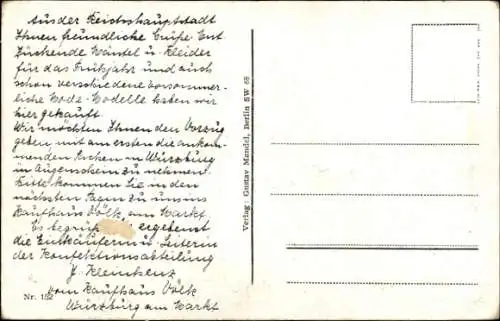 Aus der Reichshauptstadt
Ihnen freundliche Grüße. Ent
zückende Mäntel u. Kleider
für das Frühjahr und auch
schon verschiedene vorsommer-
liche Mode-Modelle haben wir
hier gekauft.
Wir möchten Ihnen den Vorzug
geben mit am ersten die ankom-
menden Sachen in Würzburg
in Augenschein zu nehmen.
Bitte kommen Sie in den
nächsten Tagen zu uns ins
Kaufhaus Völk am Markt.
Es begrüß ergebenst
die Einkäuferin u. Leiterin
der Konfektionsabteilung
vom Kaufhaus Völk
Würzburg am Markt
Nr. 152
Verlag: Gustav Mandel, Berlin SW 68